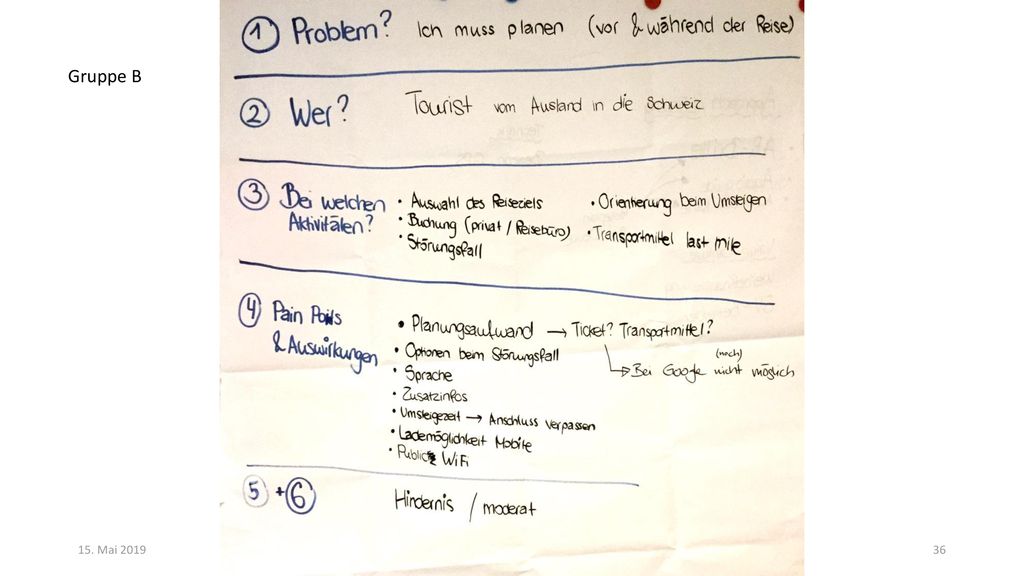 Gruppe B
1 Problem? Ich muss planen (vor & während der Reise)
2 Wer? Tourist vom Ausland in die Schweiz
3 Bei welchen Aktivitäten?
• Auswahl des Reiseziels
• Buchung (privat / Reisebüro)
• Störungsfall
• Orientierung beim Umsteigen
• Transportmittel last mile
4 Pain Poits
& Auswirkungen
• Planungsaufwand → Ticket? Transportmittel?
(noch)
→ Bei Google nicht möglich
• Optionen beim Störungsfall
• Sprache
• Zusatzinfos
• Umsteigezeit → Anschluss verpassen
• Lademöglichkeit Mobile
• Public WiFi
5 + 6 Hindernis / moderat
15. Mai 2019
36